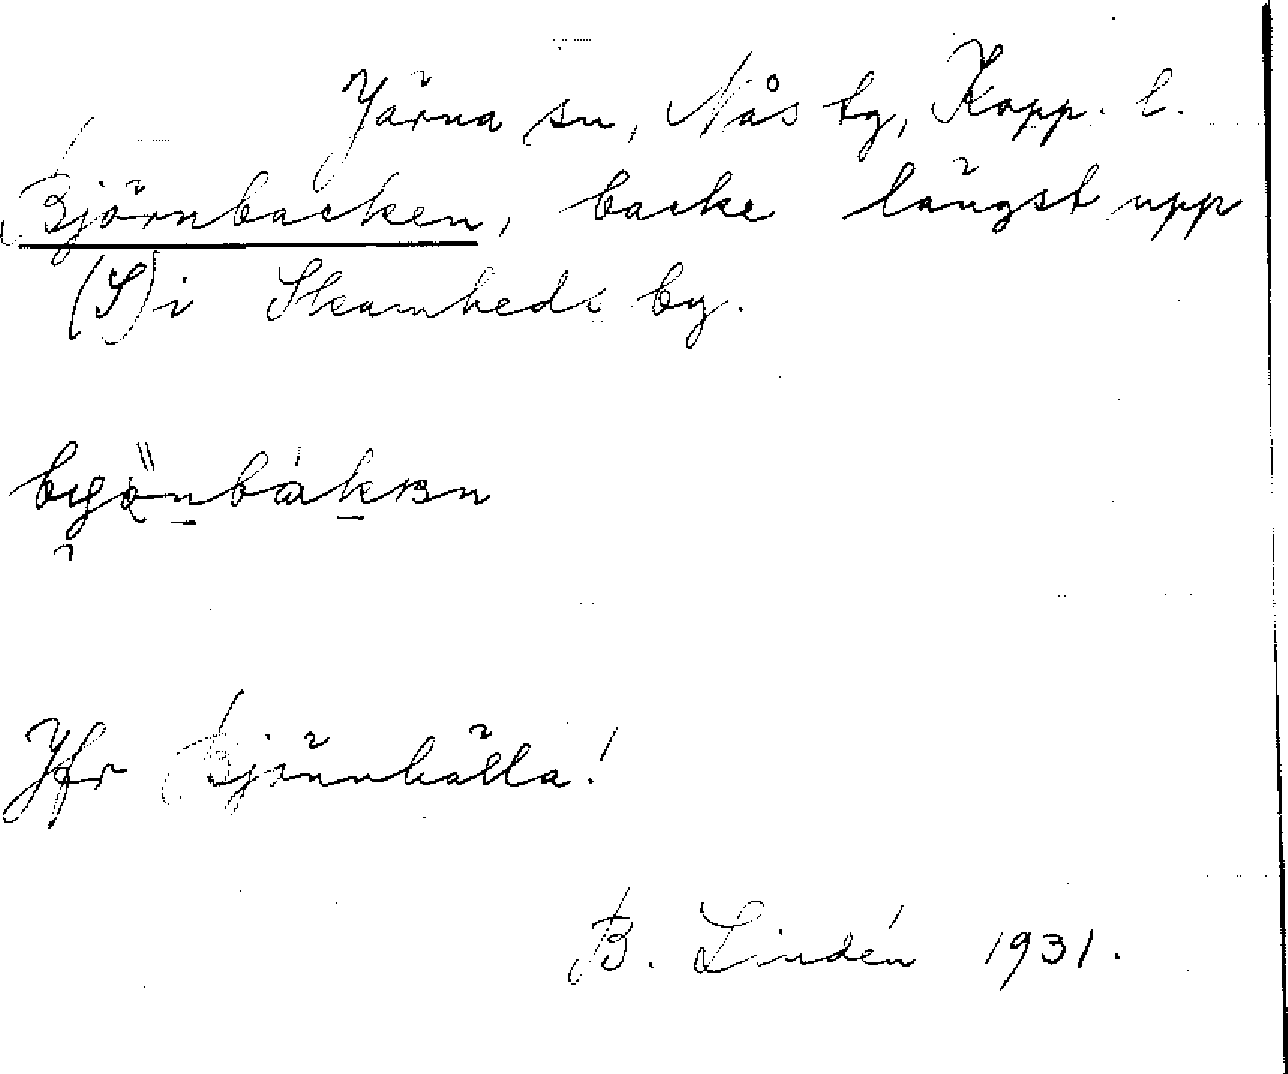 Järna sn, Nås tg, Kopp. l.
Björnbacken, backe längst upp
(S) i Skamheds by.
Jfr Björnhälla!
B. Lindén 1931.